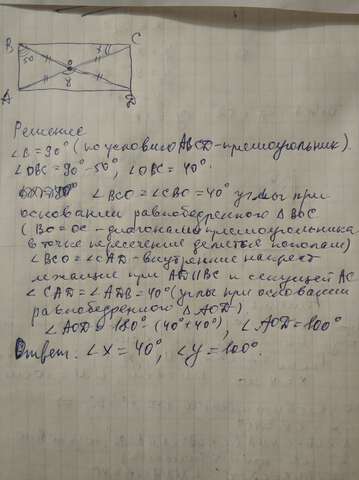 B C
50 x
O
y
A D
Решение
∠B = 90° (по условию ABCD - прямоугольник).
∠OBC = 90° - 50°, ∠OBC = 40°.
∠BCO = ∠CBO = 40° углы при
основании равнобедренного △BOC
(BO = OC - диагонали прямоугольника
в точке пересечения делятся пополам)
∠BCO = ∠CAD - внутренние накрест
лежащие при AD || BC и секущей AC
∠CAD = ∠ADB = 40° (углы при основании
равнобедренного △AOD)
∠AOD = 180° - (40° + 40°), ∠AOD = 100°
Ответ: ∠x = 40°, ∠y = 100°.